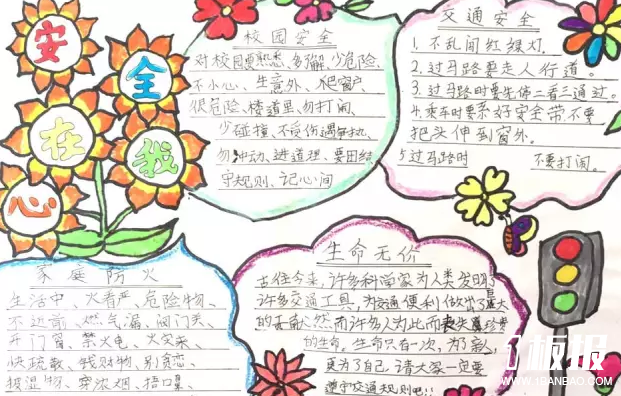 安全在我心
校园安全
对校园要熟悉、多了解、少危险、
不小心、生意外、爬窗户
很危险、楼道里、勿打闹、
少碰撞、不受伤、遇事执、
勿冲动、进道理、要团结
守规则、记心间
交通安全
1.不乱闯红绿灯.
2.过马路要走人行道。
3.过马路时要先停二看三通过。
4.乘车时要系好安全带不要
把头伸到窗外.
5过马路时 不要打闹。
家庭防火
生活中、火着严、危险物、
不近前、燃气漏、阀门关、
开门窗、禁火电、火灾来、
快疏散、钱财物、别贪恋、
披湿物、穿浓烟、捂口鼻、
生命无价
古往今来,许多科学家为人类发明了
许多交通工具,为交通便利做出了
的贡献然而许多人为此而丧失
的生命,生命只有一次,为了亲人
更为了自己,请大家一定要
遵守交通规则吧!!
板报
WWW.1BANBAO.COM